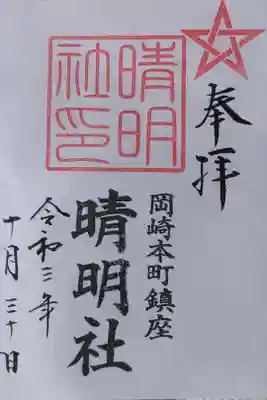 奉拝
晴明
社印
岡崎本町鎮座
晴明社
令和三年
十月三十日